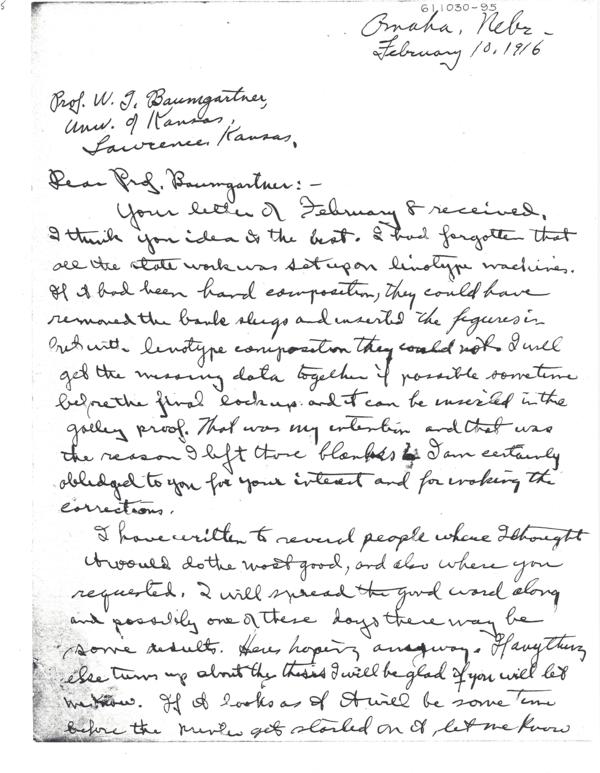 611030-95
Omaha, Nebr-
February 10, 1916
Prof. W. J. Baumgartner,
Univ. of Kansas,
Lawrence, Kansas.
Dear Prof. Baumgartner:-
Your letter of February 8 received.
I think you idea is the best. I had forgotten that
all the state work was set upon linotype machines.
If it had been hand composition, they could have
removed the bank slugs and inserted the figures in
but with linotype composition they could not. I will
get the missing data together if possible sometime
before the final lockup and it can be inserted in the
galley proof. That was my intention and that was
the reason I left those blanks. I am certainly
obledged to you for your interest and for making the
corrections.
I have written to several people where I thought
it would do the most good, and also where you
requested. I will spread the good word along
and possibly one of these days there may be
some results. Heres hoping anyway. If anything
else turns up about the thesis I will be glad if you will let
me know. If it looks as if it will be some time
before the printer gets started on it, let me know